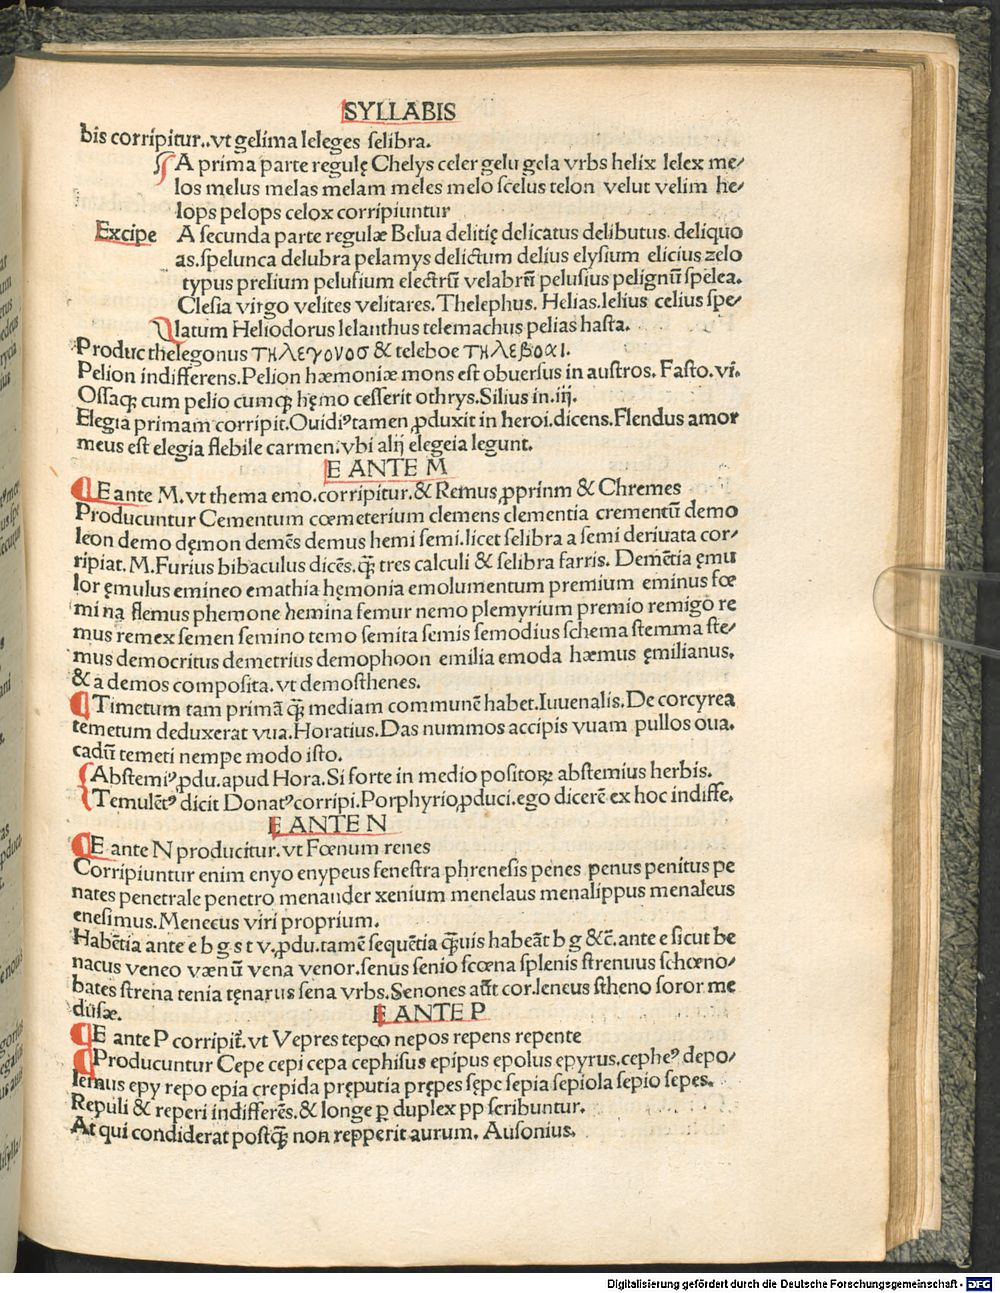 SYLLABIS
bis corripitur..vt gelima leleges selibra.
A prima parte regulę Chelys celer gelu gela vrbs helix lelex me/
los melus melas melam meles melo scelus telon velut velim he/
lops pelops celox corripiuntur
Excipe A secunda parte regulæ Belua delitię delicatus delibutus. deliquo
as.spelunca delubra pelamys delictum delius elysium elicius zelo
typus prelium pelusium electrū velabrū pelusius pelignū spelea.
Clesia virgo velites velitares. Thelephus. Helias.lelius celius spe/
latum Heliodorus lelanthus telemachus pelias hasta.
Produc thelegonus τηλεγονοσ & teleboe τηλεβοαι.
Pelion indifferens.Pelion hæmoniæ mons est obuersus in austros. Fasto.vi.
Ossaqꝫ cum pelio cumqꝫ hęmo cesserit othrys.Silius in.iij.
Elegia primam corripit.Ouidiꝰ tamen ꝓduxit in heroi.dicens.Flendus amor
meus est elegia flebile carmen.vbi alij elegeia legunt.
E ANTE M
E ante M.vt thema emo.corripitur.& Remus ꝓprinm & Chremes
Producuntur Cementum cœmeterium clemens clementia crementū demo
leon demo dęmon demēs demus hemi semi.licet selibra a semi deriuata cor/
ripiat. M.Furius bibaculus dicēs.qꝫ tres calculi & selibra farris. Demētia ęmu
lor ęmulus emineo emathia hęmonia emolumentum premium eminus fœ
mina flemus phemone hemina femur nemo plemyrium premio remigo re
mus remex semen semino temo semita semis semodius schema stemma ste/
mus democritus demetrius demophoon emilia emoda hæmus ęmilianus.
& a demos composita.vt demosthenes.
Timetum tam primā qꝫ mediam communē habet.Iuuenalis.De corcyrea
temetum deduxerat vua.Horatius.Das nummos accipis vuam pullos oua.
cadū temeti nempe modo isto.
Abstemiꝰ ꝓdu.apud Hora.Si forte in medio positoꝝ abstemius herbis.
Temulētꝰ dicit Donatꝰ corripi.Porphyrio ꝓduci.ego dicerē ex hoc indiffe.
E ANTE N
E ante N producitur.vt Fœnum renes
Corripiuntur enim enyo enypeus fenestra phrenesis penes penus penitus pe
nates penetrale penetro menander xenium menelaus menalippus menaleus
enesimus.Menecus viri proprium.
Habētia ante e b g s t v.ꝓdu.tamē sequētia qꝫuis habeāt b g &c̄.ante e sicut be
nacus veneo vænū vena venor.senus senio scœna splenis strenuus schœno/
bates strena tenia tęnarus sena vrbs.Senones aūt cor.leneus stheno soror me
dusæ.
E ANTE P
E ante P corripit̄.vt Vepres tepeo nepos repens repente
Producuntur Cepe cepi cepa cephisus epipus epolus epyrus.cepheꝰ depo/
lemus epy repo epia crepida pręputia prępes sępe sepia sepiola sepio sepes.
Repuli & reperi indifferēs.& longe ꝑ duplex pp scribuntur.
At qui condiderat postqꝫ non repperit aurum. Ausonius.
Digitalisierung gefördert durch die Deutsche Forschungsgemeinschaft - DFG